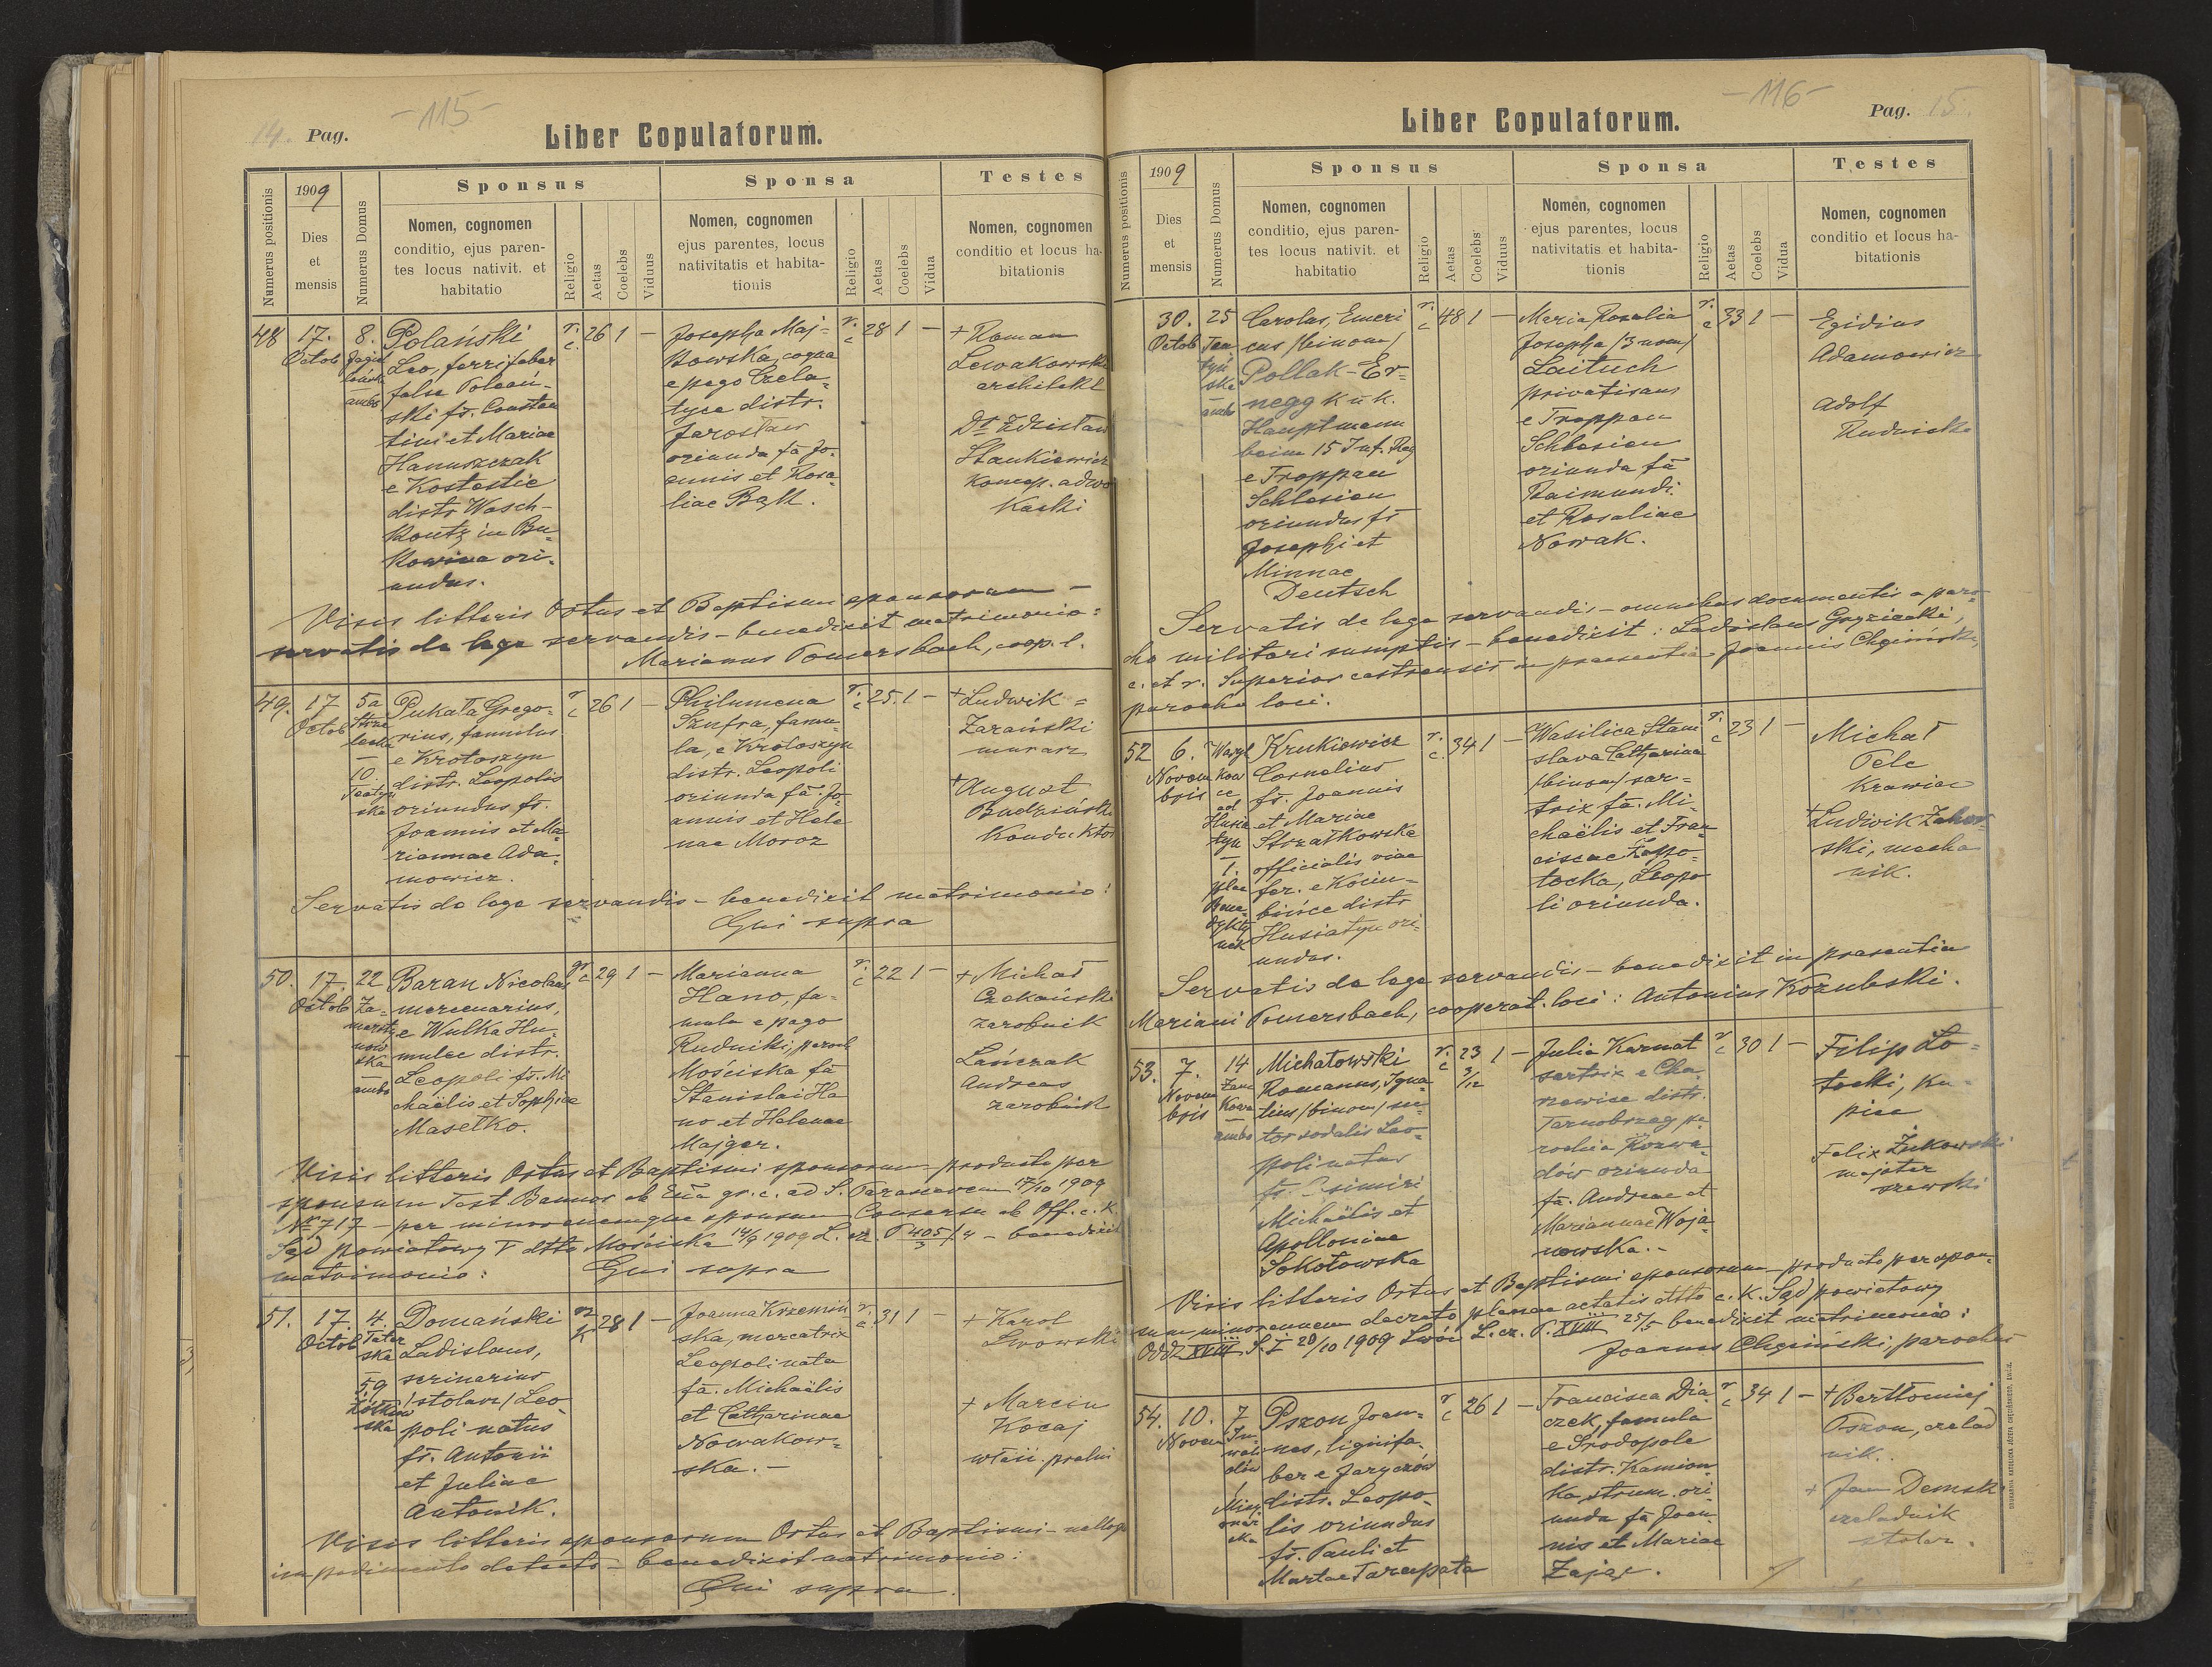 14. Pag.
-115-
Liber Copulatorum.
Numerus positionis
1909
Dies
et
mensis
Numerus Domus
Sponsus
Nomen, cognomen
conditio, ejus paren-
tes locus nativit. et
habitatio
Religio
Aetas
Coelebs
Viduus
Sponsa
Nomen, cognomen
ejus parentes, locus
nativitatis et habita-
tionis
Religio
Aetas
Coelebs
Vidua
Testes
Nomen, cognomen
conditio et locus ha-
bitationis
48
17.
Octob
8.
ambo
Polański
Leo, ferrifaber
false Poleań-
ski fs. Constan
tini et Mariae
Hanuszczak
e Kostestie
distr Wasch-
koutz in Bu
kowina ori-
undus.
r. c.
26 1 -
Josepha Maj-
kowska, coqua
e pago Czela-
tyce distr.
Jarosław
oriunda fa Jo-
annis et Rosa-
liae Bąk.
r. c
28 1 -
+ Roman
Lewakowski
architekt
Dr Zdzisław
Stankiewicz
koncyp. adwo
kacki
Visis litteris Ortus et Baptismi sponsorum -
servatis de lege servandis - benedixit matrimonio:
Marianus Pomersbach, coop. l.
49.
17
Octob
5a
10.
Pukała Grego-
rius, famulus
e Krotoszyn
distr. Leopolis
oriundus fs.
Joannis et Ma
riannae Ada-
mowicz.
r c
26 1 -
Philumena
Sznfra, famu-
la, e Krotoszyn
distr. Leopoli
oriunda fa. Jo-
annis et Hele
nae Moroz
r. c
25. 1 -
+ Ludwik
Zarański
murarz
+ August
Budziński
Konduktor
Servatis de lege servandis - benedixit matrimonio:
Qui supra
50.
17.
Octob
22
Za-
marsty
now
ska
ambo
Baran Nicolaus
mercenarius,
e Wulka Hu-
mulec distr.
Leopoli fs. Mi
chaëlis et Sophiae
Masełko.
gr c
29 1 -
Marianna
Hano, fa-
mula e pago
Rudniki, paroch
Mościska fa
Stanislai Ha
no et Helenae
Majger.
r. c
22 1 -
+ Michał
Czekański
zarobnik
Łańczak
Andreas
zarobnik
Visis litteris Ortus et Baptismi sponsorum - producto per
sponsum Test Bannor ab Ecc̄a gr. c. ad S. Parascevem 17/10 1909
No 717 - per minorennemque sponsam Consensu ab Off. c. K
Sąd powiatowy V dtto Mościska 14/9 1909 L. cz. P 405/3 /4 - benedixit
matrimonio: Qui supra
51.
17.
Octob
4.
Tatar
ska
59
Żółkiew
ska
Domański
Ladislaus,
scrinarius
/stolarz/ Leo-
poli natus
fs. Antonii
et Juliae
Antonik.
28 1 -
Joanna Krzemiń
ska, mercatrix
Leopoli nata
fa. Michaëlis
et Catharinae
Nowakow-
ska. -
r. c.
31 1 -
+ Karol
Lwowski
+ Marcin
Kocaj
właśc. pralni
Visis litteris sponsorum Ortus et Baptismi - nullo
impedimento detecto - benedixit matrimonio:
Qui supra.
-116-
Pag. 15.
Liber Copulatorum.
Numerus positionis
1909
Dies
et
mensis
Numerus Domus
Sponsus
Nomen, cognomen
conditio, ejus paren-
tes locus nativit. et
habitatio
Religio
Aetas
Coelebs
Viduus
Sponsa
Nomen, cognomen
ejus parentes, locus
nativitatis et habita-
tionis
Religio
Aetas
Coelebs
Vidua
Testes
Nomen, cognomen
conditio et locus ha-
bitationis
30.
Octob
25
Tea
tyń
ska
ambo
Carolus, Emeri
cus /binom/
Pollak-Er-
negg k u k.
Hauptmann
beim 15 Inf. Reg
e Troppau
Schlesien
oriundus fs
Josephi et
Minnae
Deutsch
r. c
48 1 -
Maria Rosalia
Josepha /3 nom/
Laituch
privatisans
e Troppau
Schlesien
oriunda fa
Raimundi
et Rosaliae
Nowak.
r. c
33 1 -
Egidius
Adamowicz
Adolf
Rudnicki
Servatis de lege servandis - omnibus documentis a paro-
cho militari sumptis - benedixit: Ladislaus Gryziecki,
c. et r. Superior castrensis in praesentia Joannis Chęciński,
parocho loci.
52
6.
Novem
bris
Wasyl
kow
ce
ad
Husia
tyn
1.
plac
Bene
dykty
nek
Krukiewicz
Cornelius
fs. Joannis
et Mariae
Strzałkowska
officialis viae
fer. e Kociu-
bińce distr
Husiatyn ori-
undus.
r. c.
34 1 -
Wasilica Stani
slava Catharina
/binom/ sar-
trix fa. Mi-
chaëlis et Fran
ciscae Zapo-
tocka, Leopo
li oriunda.
r. c
23 1 -
Michał
Pelc
krawiec
+ Ludwik Zahor-
ski, mecha
nik.
Servatis de lege servandis - benedixit in praesentia
Mariani Pomersbach, cooperat. loci: Antonius Kozubski.
53.
7.
Novem
bris
14
Zam
kowa
ambo
Michałowski
Romanus, Igna-
tius /binom/ su-
tor sodalis Leo-
poli natus
fs. Casimiri
Michaëlis et
Apolloniae
Sokołowska
r. c
23 3/12
1 -
Julia Karnat
sartrix e Cha-
rzewice distr.
Tarnobrzeg pa
rochia Rozwa-
dów oriunda
fa. Andreae et
Mariannae Woja-
nowska. -
r c
30 1 -
Filip Ło-
tocki, ku-
piec
Felix Żukowski
majster
szewski
Visis litteris Ortus et Baptismi sponsorum - producto per spon-
sum minorennem decreto plenae aetatis dtto c. K. Sąd powiatowy
Odd XVIII S. I 20/10 1909 Lwów L. cz. P. XVIII 25/5 benedixit matrimonio:
Joannes Chęciński, parochus
54.
10.
Novem
7
Pszon Joan-
nes, lignifa-
ber e Jaryczów
distr. Leopo-
lis oriundus
fs. Pauli et
Martae Tarapata
r c
26 1 -
Francisca Dia
czek, famula
e Srodopole
distr. Kamion-
ka strum. ori-
unda fa Joan-
nis et Mariae
Zając.
r c
34 1 -
+ Bertłomiej
Pszon, czelad
nik.
+ Jan Demski
czeladnik
stolar.